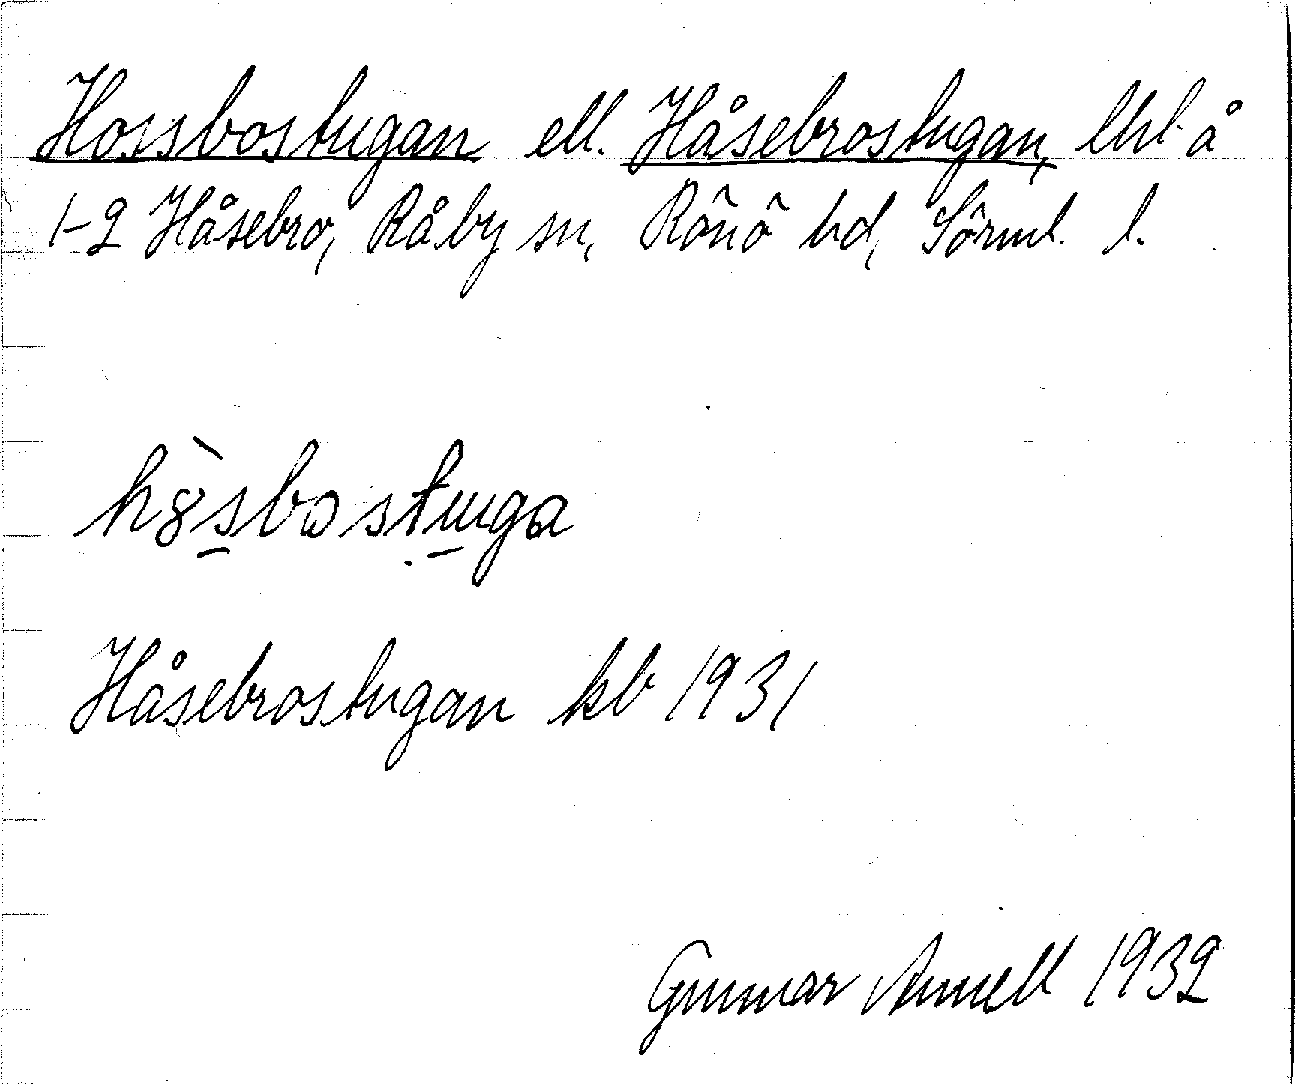 Hossbostugan ell. Håsebrostugan, lht å
1-2 Håsebro, Råby sn, Rönö hd, Sörml. l.
hȣ̀sbostuga
Håsebrostugan kb 1931
Gunnar Annell 1932